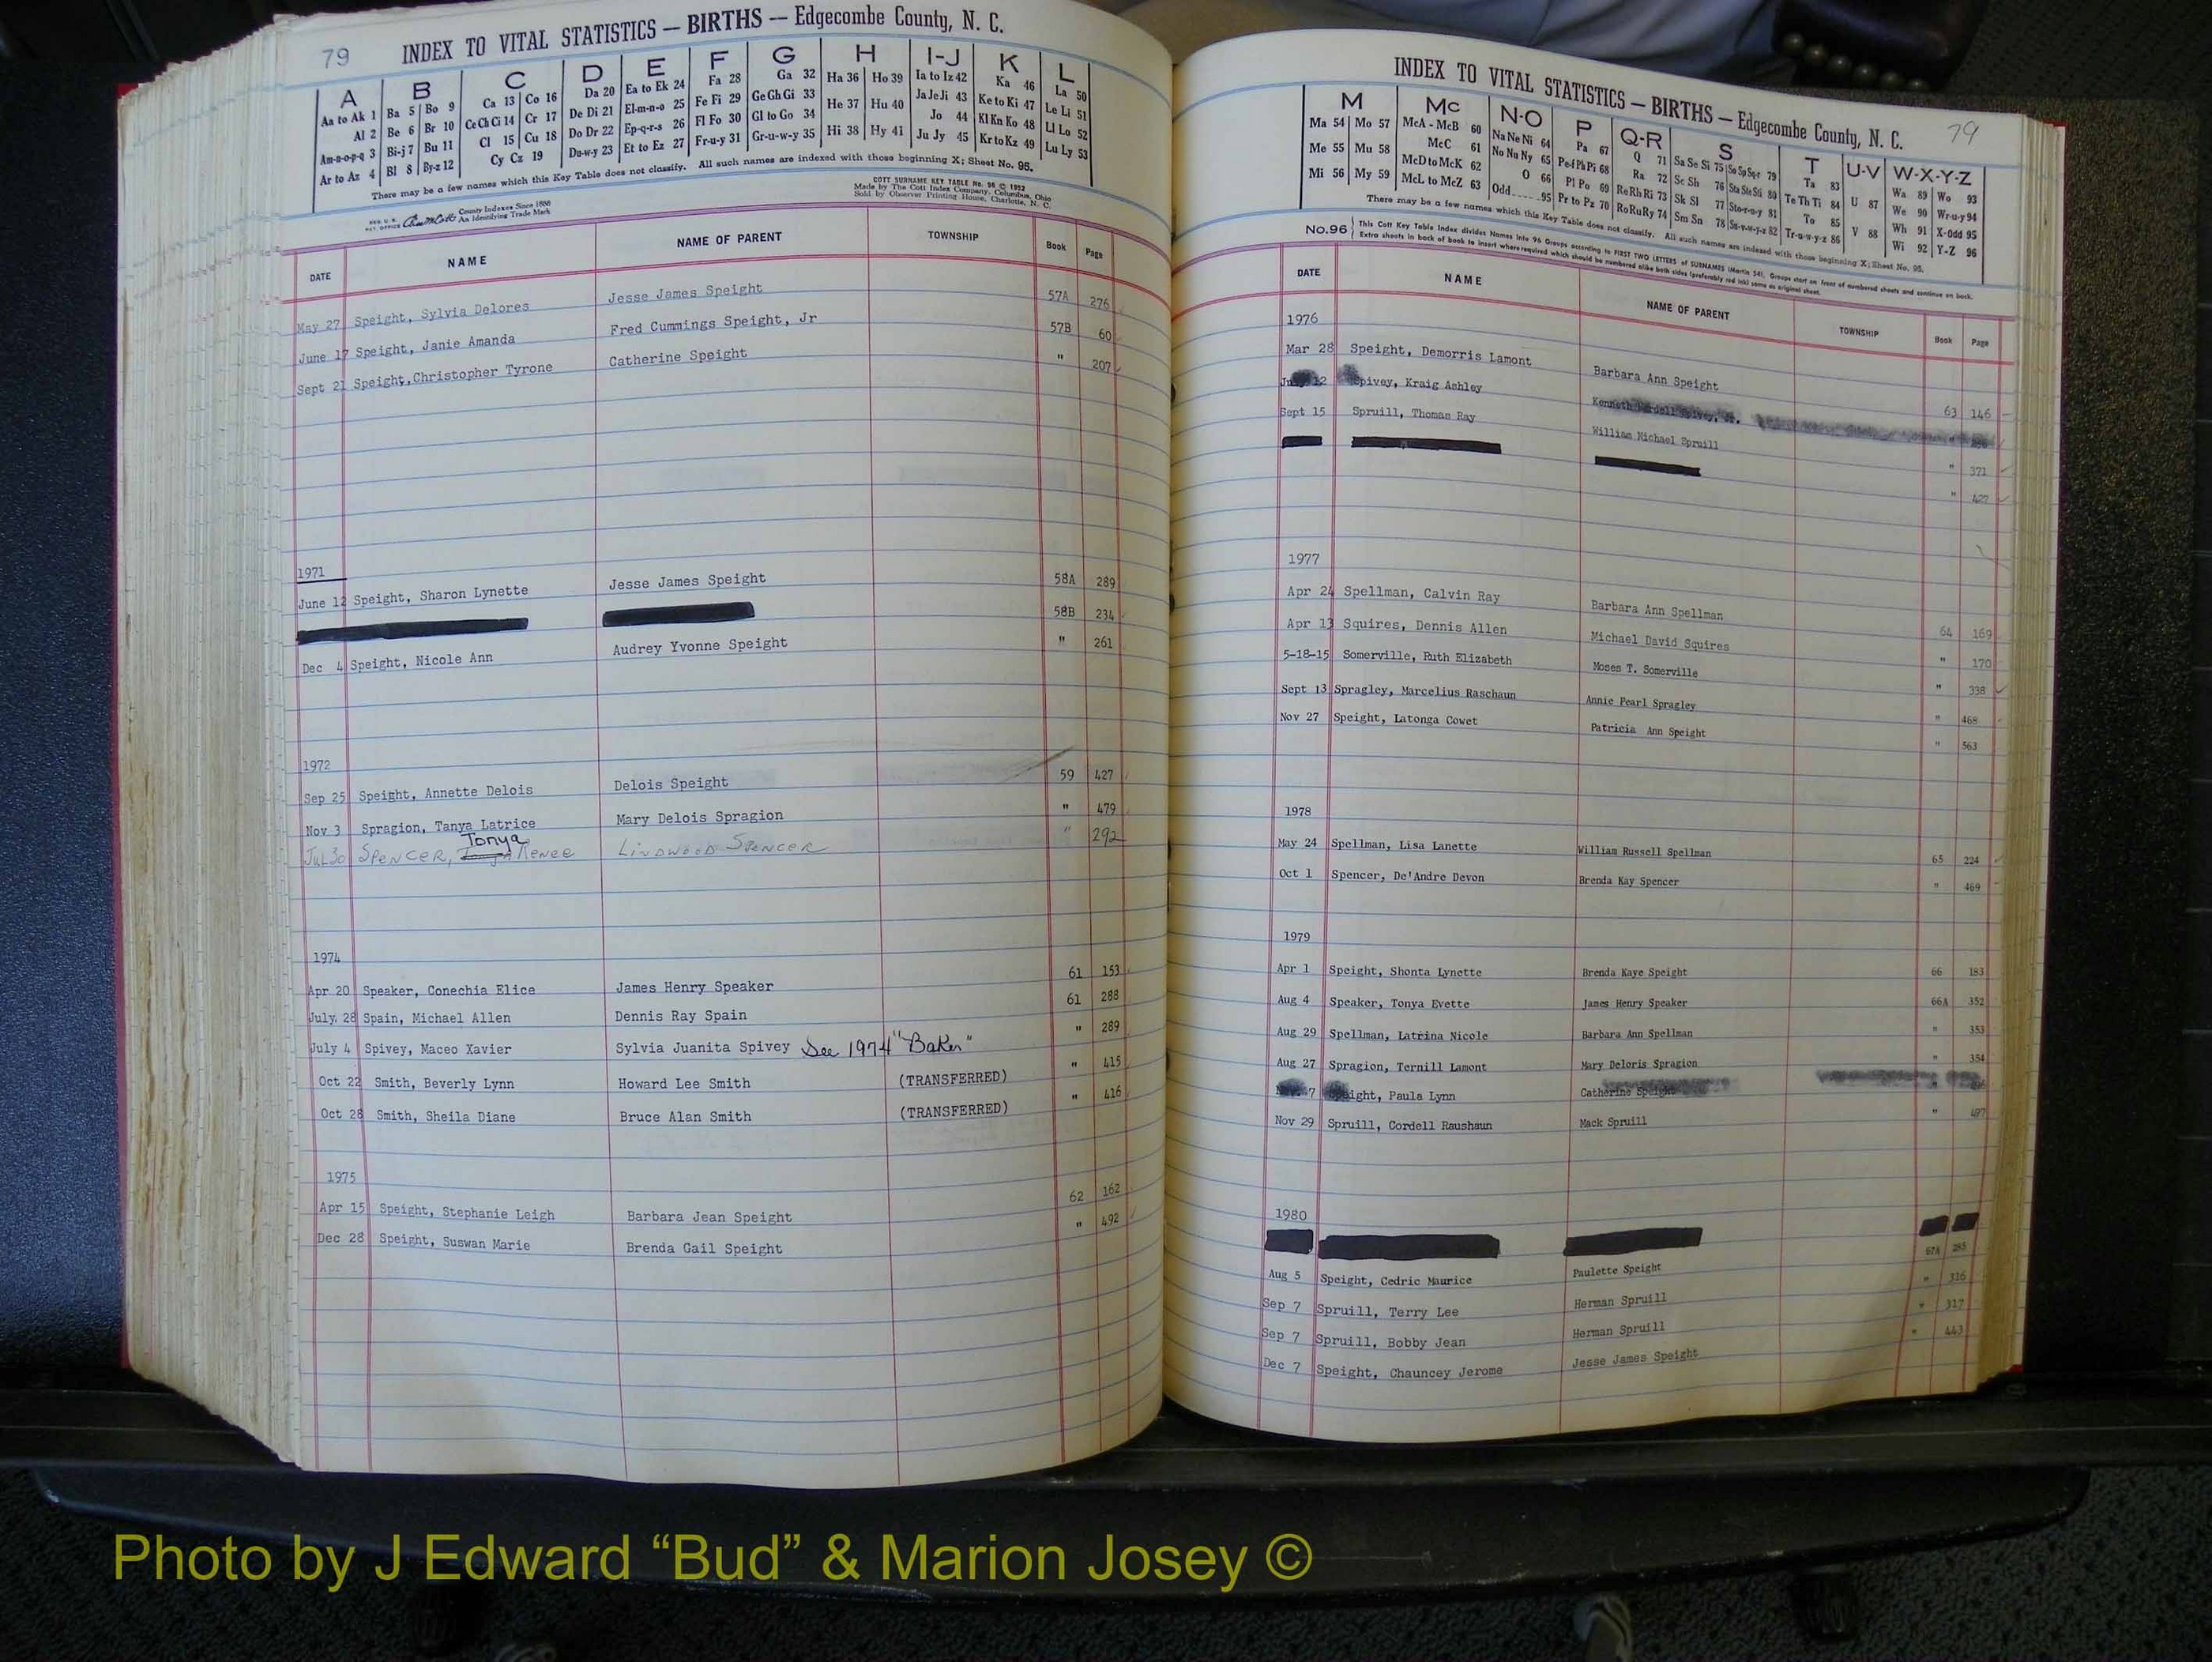 79
INDEX TO VITAL STATISTICS — BIRTHS — Edgecombe County, N. C.
A B C D E F G H I-J K L
Aa to Ak 1 Ba 5 Bo 9 Ca 13 Co 16 Da 20 Ea to Ek 24 Fa 28 Ga 32 Ha 36 Ho 39 Ia to Iz 42 Ka 46 La 50
Al 2 Be 6 Br 10 Ce Ch Ci 14 Cr 17 De Di 21 El-m-n-o 25 Fe Fi 29 Ge Gh Gi 33 He 37 Hu 40 Ja Je Ji 43 Ke to Ki 47 Le Li 51
Am-n-o-p-q 3 Bi-j 7 Bu 11 Cl 15 Cu 18 Do Dr 22 Ep-q-r-s 26 Fl Fo 30 Gl to Go 34 Hi 38 Hy 41 Jo 44 Kl Kn Ko 48 Ll Lo 52
Ar to Az 4 Bl 8 By-z 12 Cy Cz 19 Du-w-y 23 Et to Ez 27 Fr-u-y 31 Gr-u-w-y 35 Ju Jy 45 Kr to Kz 49 Lu Ly 53
There may be a few names which this Key Table does not classify. All such names are indexed with those beginning X; Sheet No. 95.
County Indexes Since 1888
An Identifying Trade Mark
COTT SURNAME KEY TABLE No. 96 © 1952
Made by The Cott Index Company, Columbus, Ohio
Sold by Observer Printing House, Charlotte, N. C.
DATE NAME NAME OF PARENT TOWNSHIP Book Page
May 27 Speight, Sylvia Delores Jesse James Speight 57A 276
June 17 Speight, Janie Amanda Fred Cummings Speight, Jr 57B 60
Sept 21 Speight, Christopher Tyrone Catherine Speight " 207
1971
June 12 Speight, Sharon Lynette Jesse James Speight 58A 289
58B 234
Dec 4 Speight, Nicole Ann Audrey Yvonne Speight " 261
1972
Sep 25 Speight, Annette Delois Delois Speight 59 427
Nov 3 Spragion, Tanya Latrice Mary Delois Spragion " 479
Jul 30 SPENCER, Tonya Renee LINDWOOD SPENCER " 292
1974
Apr 20 Speaker, Conechia Elice James Henry Speaker 61 153
July. 28 Spain, Michael Allen Dennis Ray Spain 61 288
July 4 Spivey, Maceo Xavier Sylvia Juanita Spivey See 1974 "Baker" " 289
Oct 22 Smith, Beverly Lynn Howard Lee Smith (TRANSFERRED) " 415
Oct 28 Smith, Sheila Diane Bruce Alan Smith (TRANSFERRED) " 416
1975
Apr 15 Speight, Stephanie Leigh Barbara Jean Speight 62 162
Dec 28 Speight, Suswan Marie Brenda Gail Speight " 492
INDEX TO VITAL STATISTICS — BIRTHS — Edgecombe County, N. C. 79
M Mc N-O P Q-R S T U-V W-X-Y-Z
Ma 54 Mo 57 McA - McB 60 Na Ne Ni 64 Pa 67 Q 71 Sa Se Si 75 So Sp Sq-r 79 Ta 83 U 87 Wa 89 Wo 93
Me 55 Mu 58 McC 61 No Nu Ny 65 Pe-f Ph Pi 68 Ra 72 Sc Sh 76 Sta Ste Sti 80 Te Th Ti 84 V 88 We 90 Wr-u-y 94
Mi 56 My 59 McD to McK 62 O 66 Pl Po 69 Re Rh Ri 73 Sk Sl 77 Sto-r-u-y 81 To 85 Wh 91 X-Odd 95
McL to McZ 63 Odd 95 Pr to Pz 70 Ro Ru Ry 74 Sm Sn 78 Su-v-w-y-z 82 Tr-u-w-y-z 86 Wi 92 Y-Z 96
There may be a few names which this Key Table does not classify. All such names are indexed with those beginning X; Sheet No. 95.
No.96 This Cott Key Table Index divides Names into 96 Groups according to FIRST TWO LETTERS of SURNAMES (Martin 54). Groups start on front of numbered sheets and continue on back.
Extra sheets in back of book to insert where required which should be numbered alike both sides (preferably red ink) same as original sheet.
DATE NAME NAME OF PARENT TOWNSHIP Book Page
1976
Mar 28 Speight, Demorris Lamont Barbara Ann Speight 63 146
12 Spivey, Kraig Ashley "
Sept 15 Spruill, Thomas Ray William Michael Spruill " 371
" 422
1977
Apr 24 Spellman, Calvin Ray Barbara Ann Spellman 64 169
Apr 13 Squires, Dennis Allen Michael David Squires " 170
5-18-15 Somerville, Ruth Elizabeth Moses T. Somerville " 338
Sept 13 Spragley, Marcelius Raschaun Annie Pearl Spragley " 468
Nov 27 Speight, Latonga Cowet Patricia Ann Speight " 563
1978
May 24 Spellman, Lisa Lanette William Russell Spellman 65 224
Oct 1 Spencer, De'Andre Devon Brenda Kay Spencer " 469
1979
Apr 1 Speight, Shonta Lynette Brenda Kaye Speight 66 183
Aug 4 Speaker, Tonya Evette James Henry Speaker 66A 352
Aug 29 Spellman, Latrina Nicole Barbara Ann Spellman " 353
Aug 27 Spragion, Ternill Lamont Mary Deloris Spragion " 354
7 Speight, Paula Lynn Catherine Speight "
Nov 29 Spruill, Cordell Raushaun Mack Spruill " 497
1980
Aug 5 Speight, Cedric Maurice Paulette Speight 67A 285
Sep 7 Spruill, Terry Lee Herman Spruill " 316
Sep 7 Spruill, Bobby Jean Herman Spruill " 317
Dec 7 Speight, Chauncey Jerome Jesse James Speight " 443
Photo by J Edward “Bud” & Marion Josey ©